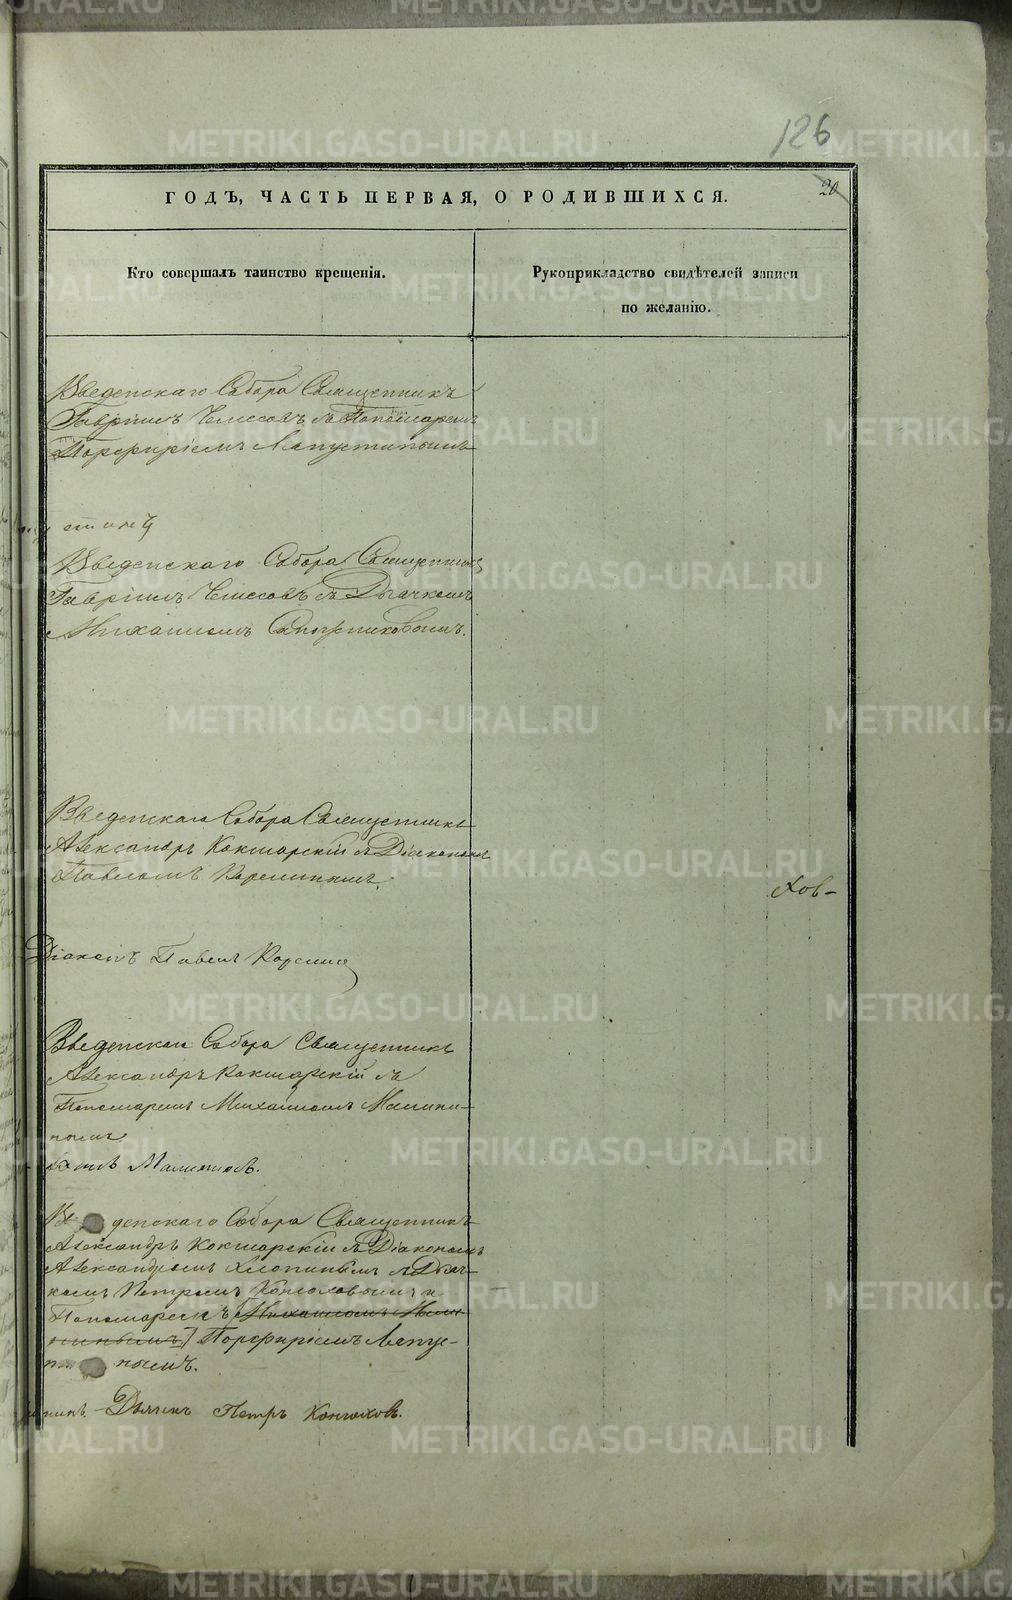 126
20
ГОДЪ, ЧАСТЬ ПЕРВАЯ, О РОДИВШИХСЯ.
Кто совершалъ таинство крещенія.
Рукоприкладство свидѣтелей записи
по желанію.
Введенскаго Собора Священникъ
Гавріилъ съ Пономаремъ
Порфиріемъ Лапустинымъ
Введенскаго Собора Священникъ
Гавріилъ съ Дьячкомъ
Михаиломъ Сапожниковымъ.
Введенскаго Собора Священникъ
Александръ Кокшарскій съ Діакономъ
Павломъ
хов-
Діаконъ Павелъ
Введенскаго Собора Священникъ
Александръ Кокшарскій съ
Пономаремъ Михаиломъ Малини-
нымъ
Малининъ.
Введенскаго Собора Священникъ
Александръ Кокшарскій съ Діакономъ
Александромъ Хлопинымъ съ Дьяч-
комъ Петромъ Конюховымъ и
Пономаремъ (Михаиломъ Мали-
нинымъ) Порфиріемъ Лапус-
тинымъ.
Дьячекъ Петръ Конюховъ.
METRIKI.GASO-URAL.RU